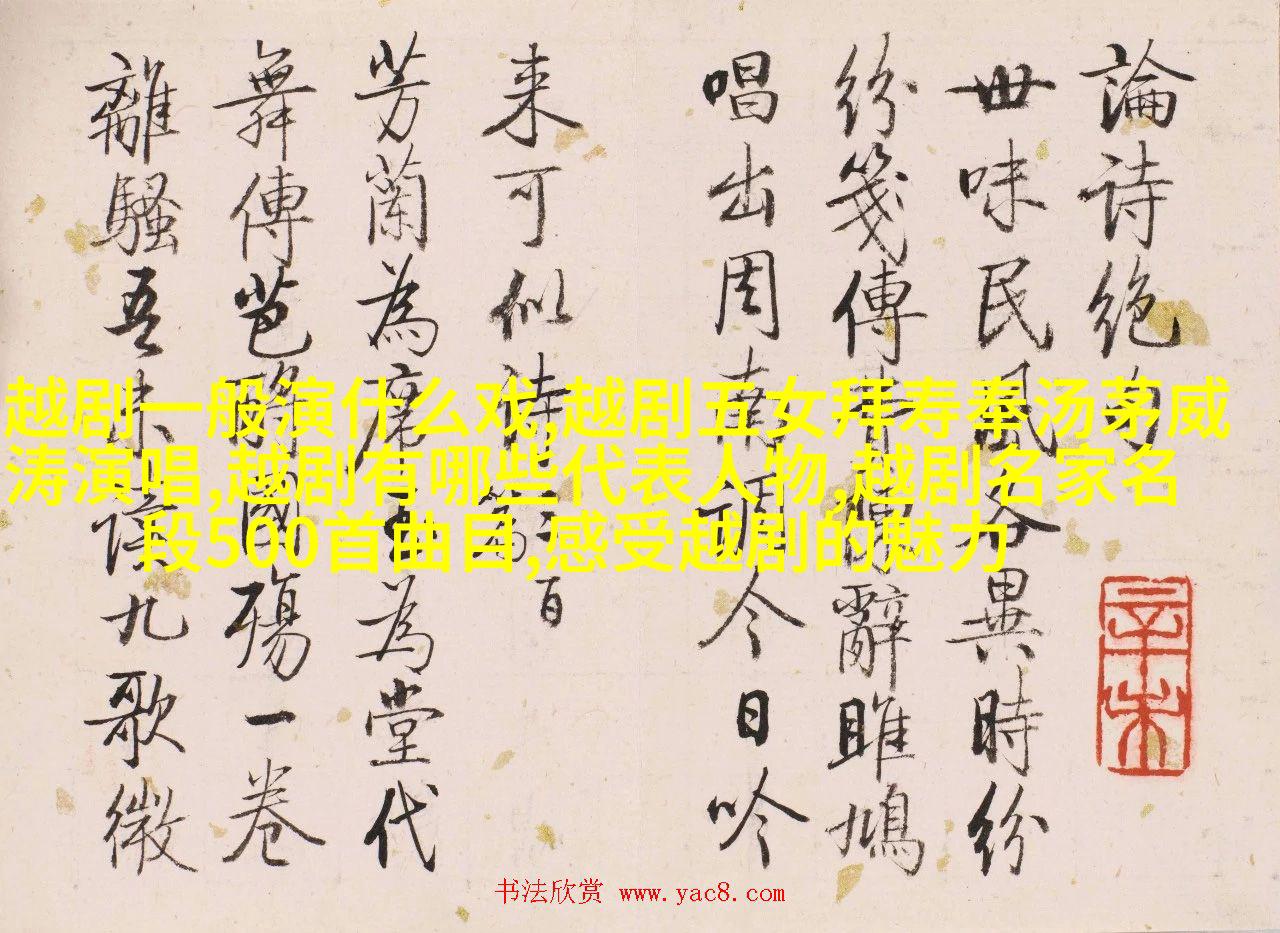 越剧一般演什么戏,越剧五女拜寿奉汤茅威
涛演唱,越剧有哪些代表人物,越剧名家名
段500首曲目,感受越剧的魅力
論詩絕句
世味民風各異時紛
紛箋傳辭雎鳩
唱出周南調今日吟
来可似詩百
芳蘭為席為堂代
舞傳芭國殤一卷
離騷吾未九歌微
书法欣赏 www.yac8.com